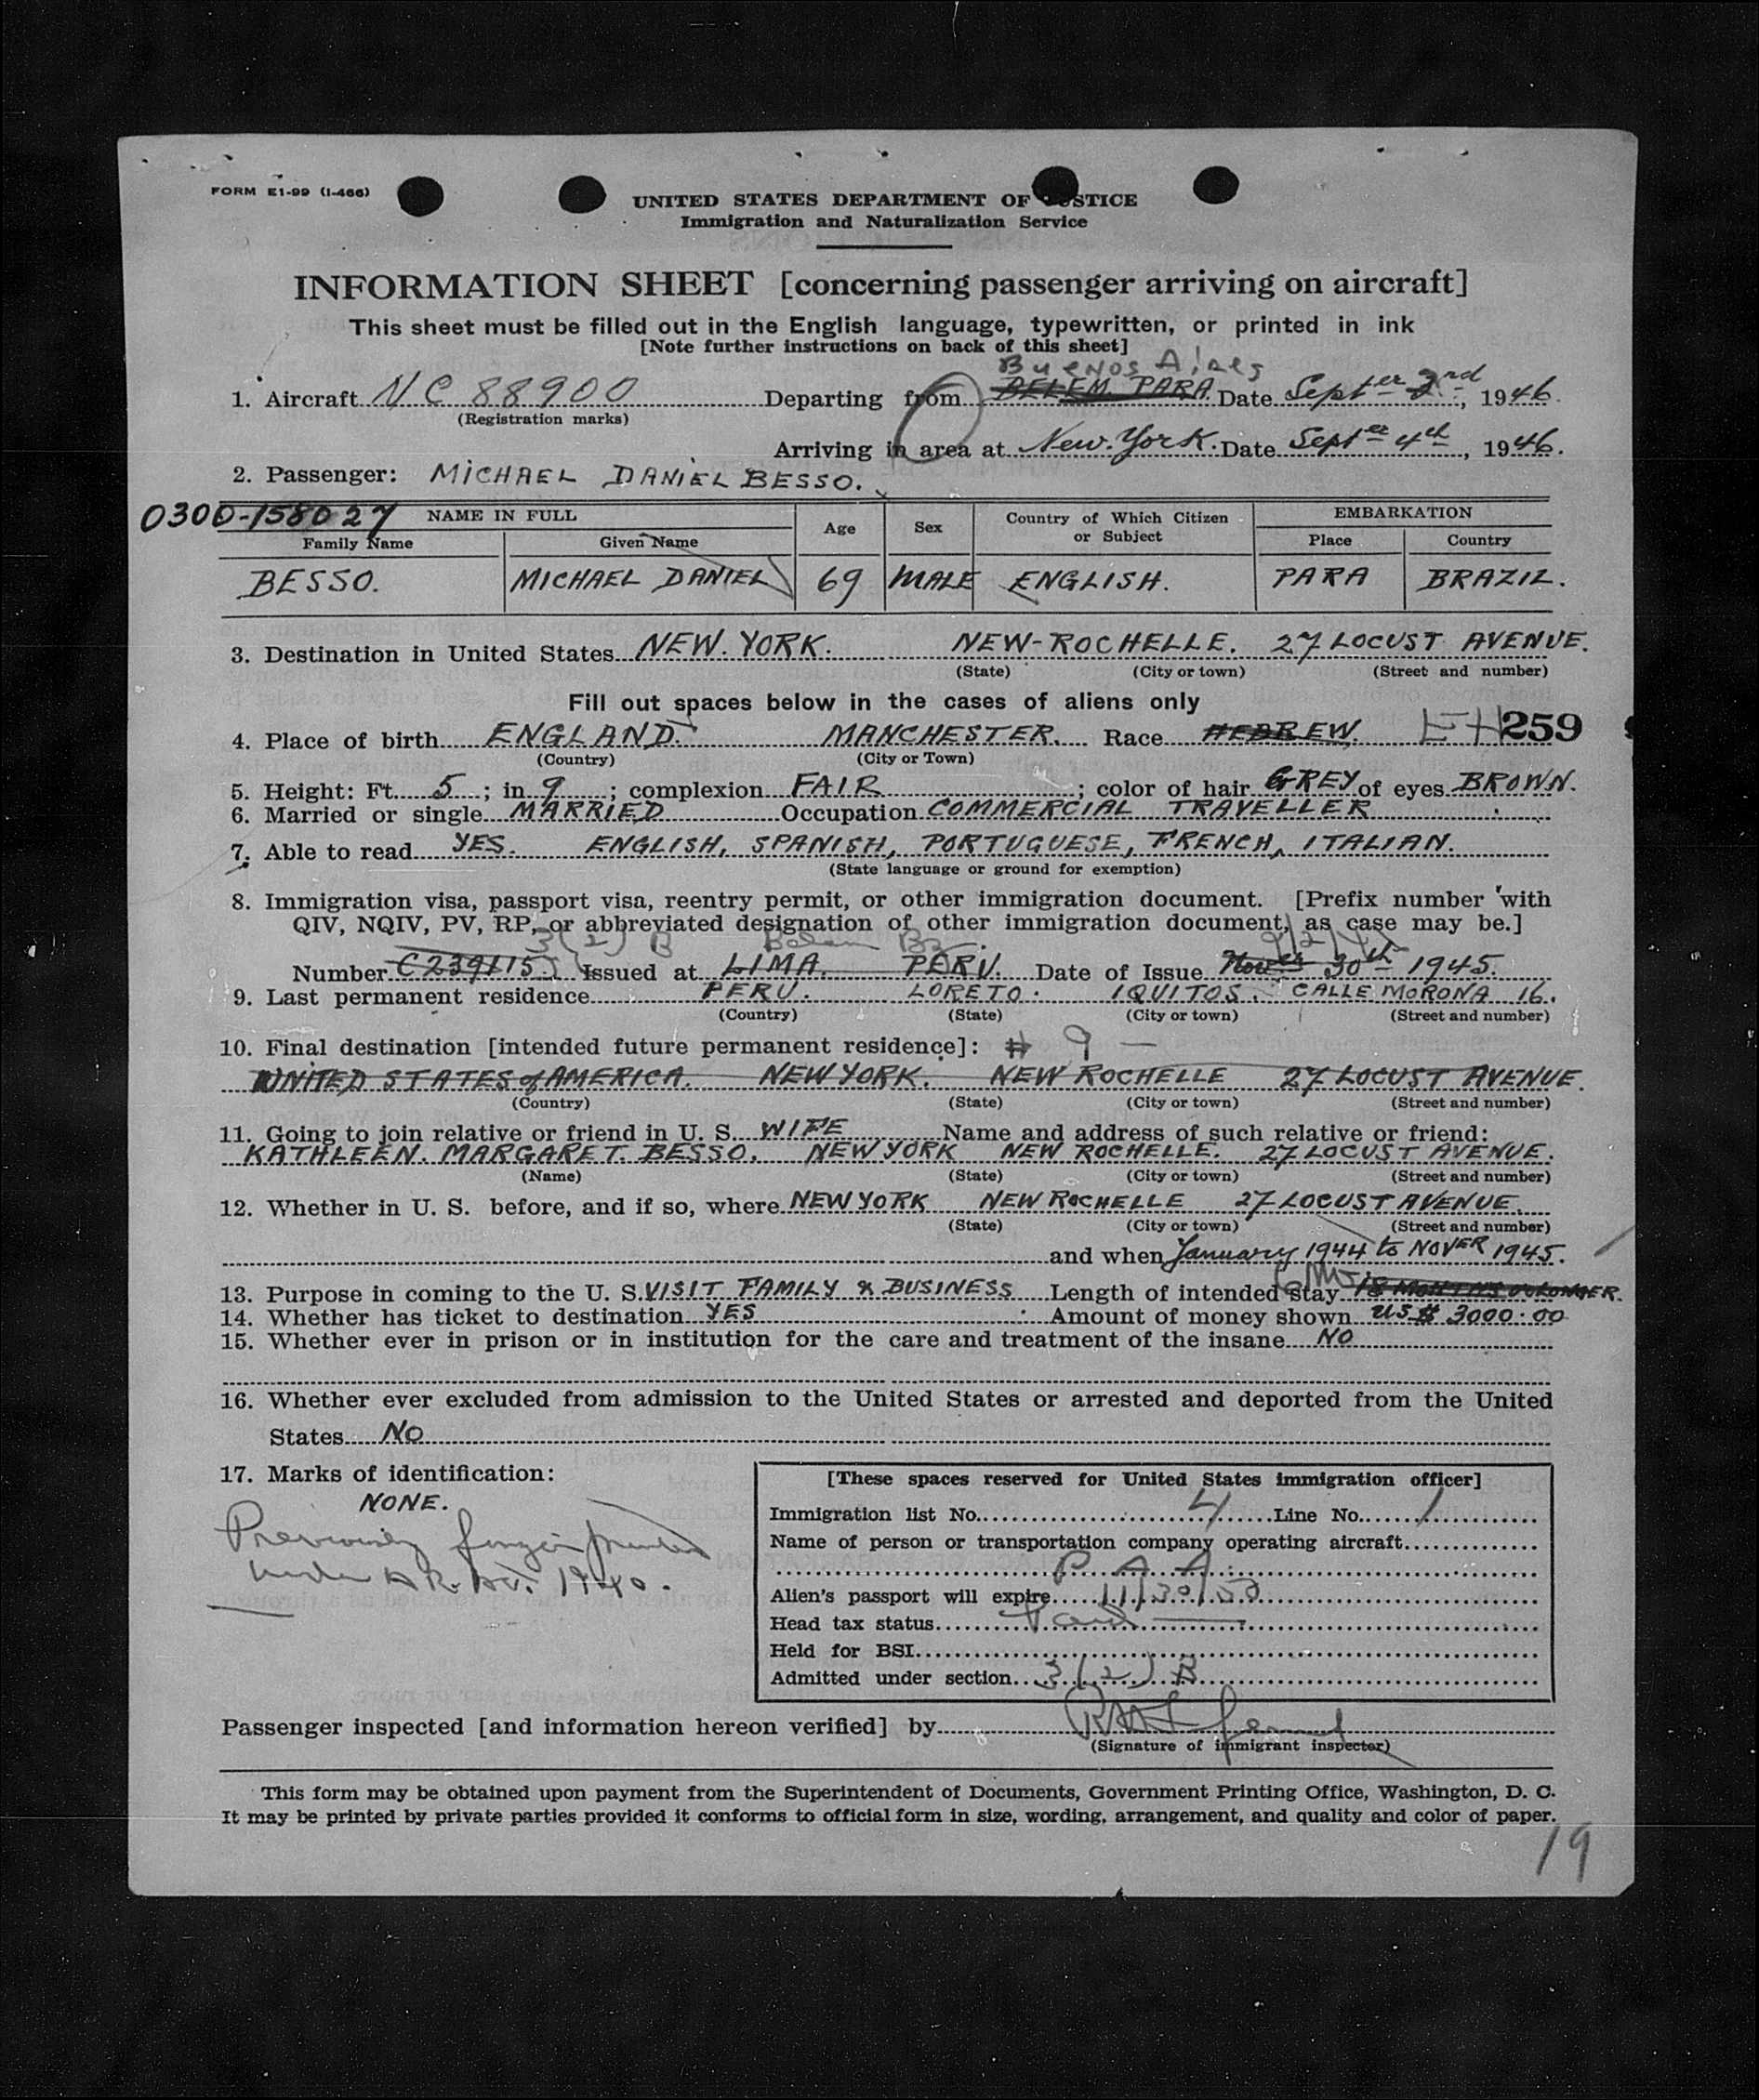 FORM E1-99 (I-466)
UNITED STATES DEPARTMENT OF JUSTICE
Immigration and Naturalization Service
INFORMATION SHEET [concerning passenger arriving on aircraft]
This sheet must be filled out in the English language, typewritten, or printed in ink
[Note further instructions on back of this sheet]
Buenos Aires
1. Aircraft NC 88900 Departing from BELEM. PARA. Date Septer 2nd, 1946.
(Registration marks)
Arriving in area at New York. Date Septer 4th, 1946.
2. Passenger: MICHAEL DANIEL BESSO.
0300-158027 NAME IN FULL Age Sex Country of Which Citizen or Subject EMBARKATION
Family Name Given Name Place Country
BESSO. MICHAEL DANIEL 69 MALE ENGLISH. PARA BRAZIL.
3. Destination in United States NEW. YORK. NEW-ROCHELLE. 27 LOCUST AVENUE.
(State) (City or town) (Street and number)
Fill out spaces below in the cases of aliens only
4. Place of birth ENGLAND. MANCHESTER. Race HEBREW. 259
(Country) (City or Town)
5. Height: Ft. 5 ; in 9 ; complexion FAIR ; color of hair GREY of eyes BROWN.
6. Married or single MARRIED Occupation COMMERCIAL TRAVELLER
7. Able to read YES. ENGLISH, SPANISH, PORTUGUESE, FRENCH, ITALIAN.
(State language or ground for exemption)
8. Immigration visa, passport visa, reentry permit, or other immigration document. [Prefix number with
QIV, NQIV, PV, RP, or abbreviated designation of other immigration document, as case may be.]
3(2) B Belem Bz.
Number Issued at LIMA. PERU. Date of Issue 30th 1945.
9. Last permanent residence PERU. LORETO. IQUITOS. CALLE MORONA 16.
(Country) (State) (City or town) (Street and number)
10. Final destination [intended future permanent residence]: # 9 —
UNITED STATES of AMERICA. NEW YORK. NEW ROCHELLE 27 LOCUST AVENUE.
(Country) (State) (City or town) (Street and number)
11. Going to join relative or friend in U. S. WIFE Name and address of such relative or friend:
KATHLEEN. MARGARET. BESSO. NEW YORK NEW ROCHELLE. 27 LOCUST AVENUE.
(Name) (State) (City or town) (Street and number)
12. Whether in U. S. before, and if so, where NEW YORK NEW ROCHELLE 27 LOCUST AVENUE.
(State) (City or town) (Street and number)
and when January 1944 to NOVER 1945.
13. Purpose in coming to the U. S. VISIT FAMILY & BUSINESS Length of intended stay 18 MONTHS OR LONGER.
14. Whether has ticket to destination YES Amount of money shown US $ 3000.00
15. Whether ever in prison or in institution for the care and treatment of the insane NO
16. Whether ever excluded from admission to the United States or arrested and deported from the United
States NO
17. Marks of identification:
NONE.
Previously fingerprinted
under A R. Act. 1940.
[These spaces reserved for United States immigration officer]
Immigration list No. 4 Line No. 1
Name of person or transportation company operating aircraft
P. A. A.
Alien's passport will expire 11/30/50
Head tax status Paid
Held for BSI
Admitted under section 3(2) B
Passenger inspected [and information hereon verified] by
(Signature of immigrant inspector)
This form may be obtained upon payment from the Superintendent of Documents, Government Printing Office, Washington, D. C.
It may be printed by private parties provided it conforms to official form in size, wording, arrangement, and quality and color of paper.
19